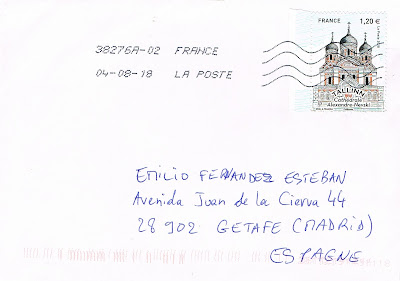 FRANCE 1,20 €
38276A-02 FRANCE
04-09-18 LA POSTE
TALLINN
Cathédrale
Alexandre Nevski
EMILIO FERNANDEZ ESTEBAN
Avenida Juan de la Cierva 44
28902 GETAFE (MADRID)
ESPAGNE